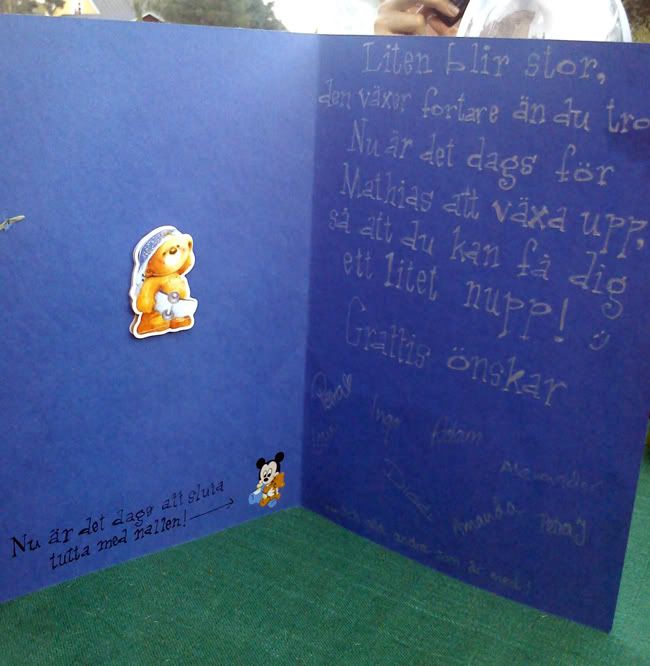 Nu är det dags att sluta
tutta med nallen!
Liten blir stor,
den växer fortare än du tro
Nu är det dags för
Mathias att växa upp,
så att du kan få dig
ett litet nupp! :)
Grattis önskar
Adam
Alexander
Amanda